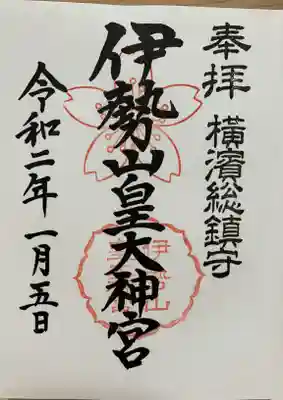 奉拝 横濱総鎮守
伊勢山皇大神宮
令和二年一月五日